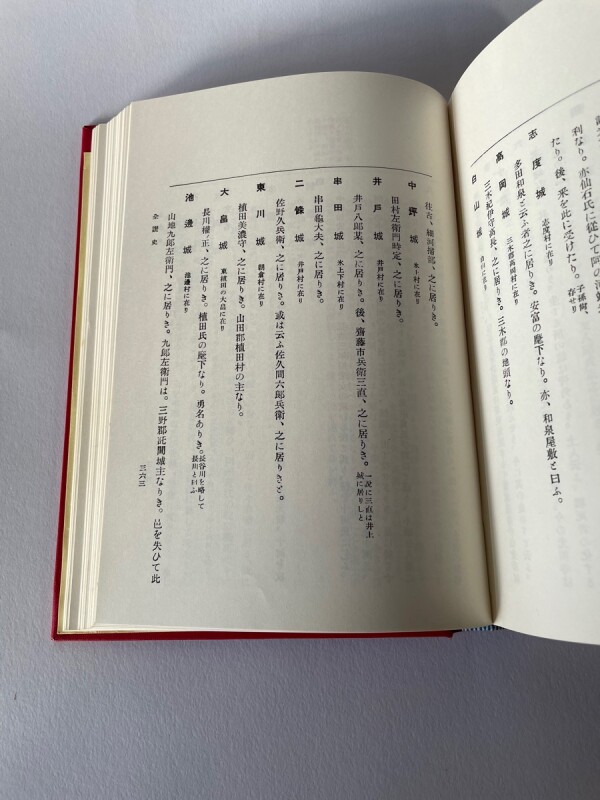 利なり。亦仙石氏に從ひて阿の
たり。後、來を此に受けたり。子孫尙、在せり
志度城　志度村に在り
多田和泉と云ふ者之に居りき。安富の麾下なり。亦、和泉屋敷と曰ふ。
高岡城　三木郡高岡村に在り
三木紀伊守高長、之に居りき。三木郡の地頭なり。
白山城　白山に在り
往古、細河掃部、之に居りき。
中坪城　氷上村に在り
田村左衛門時定、之に居りき。
井戸城　井戸村に在り
井戸八郎某、之に居りき。後、齋藤市兵衞三直、之に居りき。一説に三直は井上城に居りしと
串田城　氷上下村に在り
串田龜大夫、之に居りき。
二條城　井戸村に在り
佐野久兵衞、之に居りき。或は云ふ佐久間六郎兵衞、之に居りきと。
東川城　朝倉村に在り
植田美濃守、之に居りき。山田郡植田村の主なり。
大畠城　東植田の大畠に在り
長川權ノ正、之に居りき。植田氏の麾下なり。勇名ありき。長谷川を略して長川と曰ふ
池邊城　池邊村に在り
山地九郎左衞門、之に居りき。九郎左衞門は。三野郡託間城主なりき。邑を失ひて此
全讃史
三六三